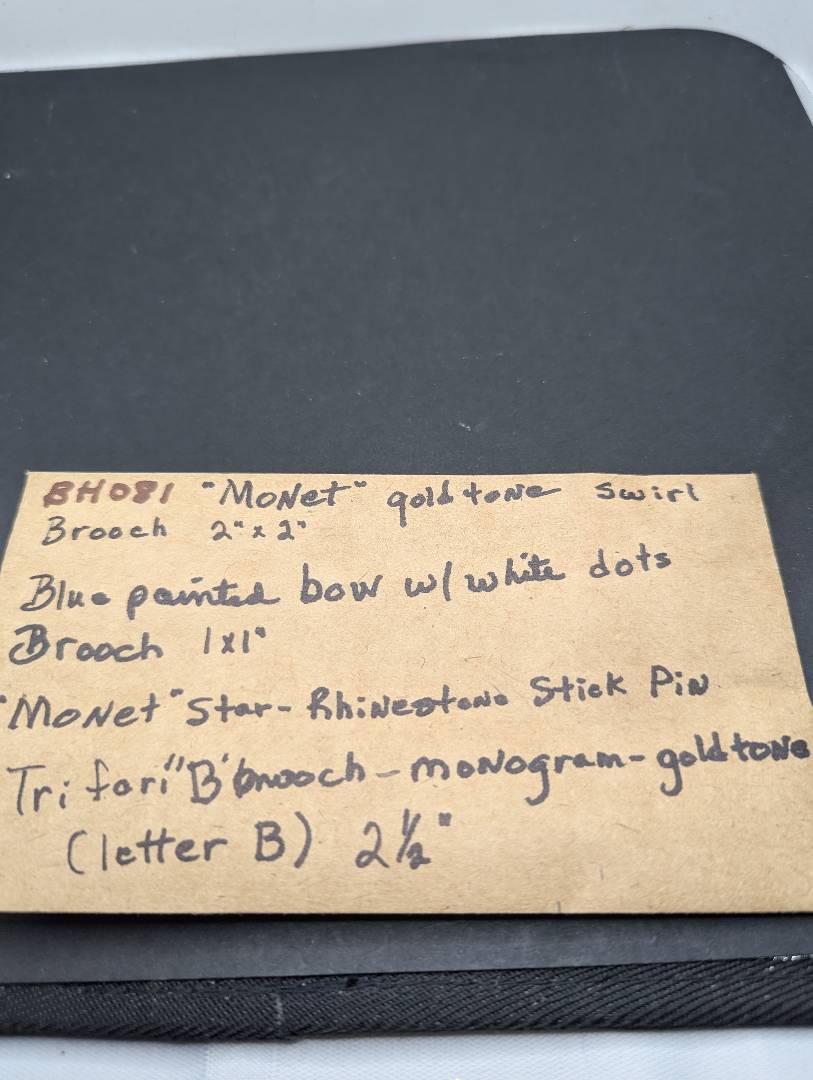 BH081 "Monet" gold tone swirl
Brooch 2" x 2"
Blue painted bow w/ white dots
Brooch 1x1"
"Monet" Star - Rhinestone Stick Pin
Trifari "B" brooch - monogram - goldtone
(letter B) 2 1/2"